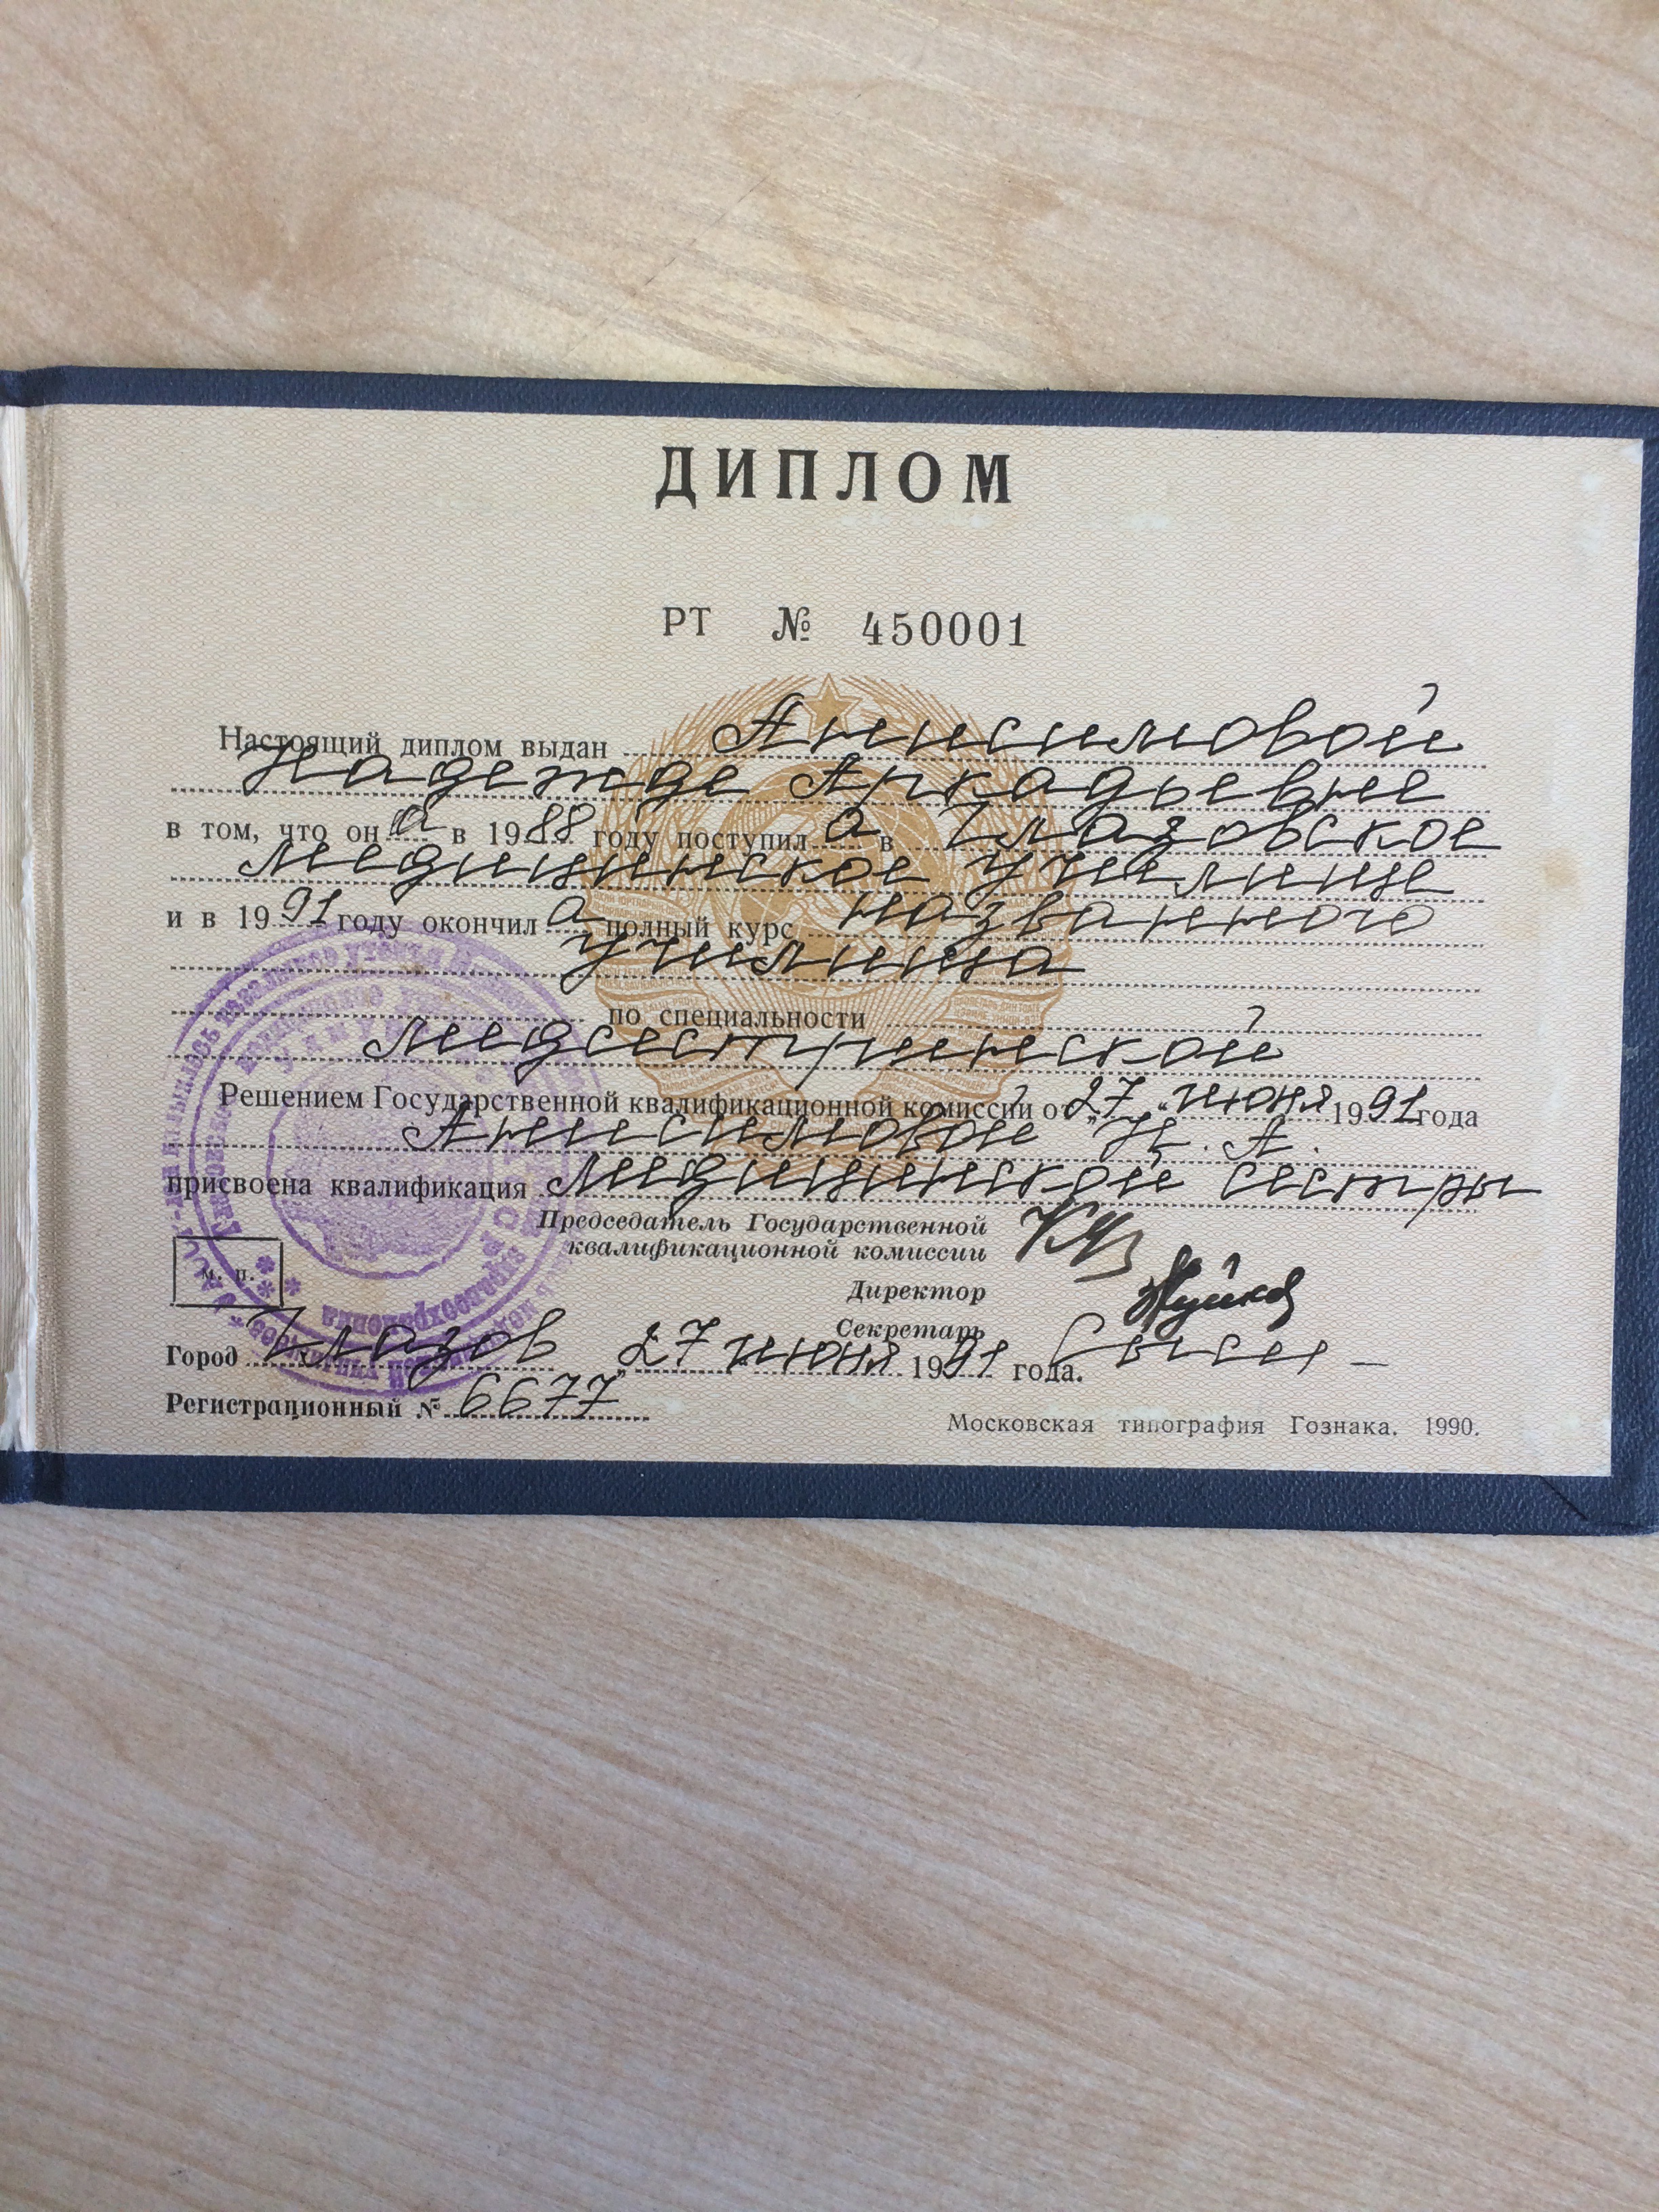 ДИПЛОМ
РТ № 450001
Настоящий диплом выдан Анисимовой
Надежде Аркадьевне
в том, что он а в 1988 году поступил а в Глазовское
медицинское училище
и в 1991 году окончил а полный курс названного
училища
по специальности
медсестринской
Решением Государственной квалификационной комиссии от „27" июня 1991 года
Анисимовой Н. А.
присвоена квалификация медицинской сестры
Председатель Государственной
квалификационной комиссии
Директор
Секретарь
м. п.
Город Глазов „27" июня 1991 года.
Регистрационный № 6677
Московская типография Гознака. 1990.